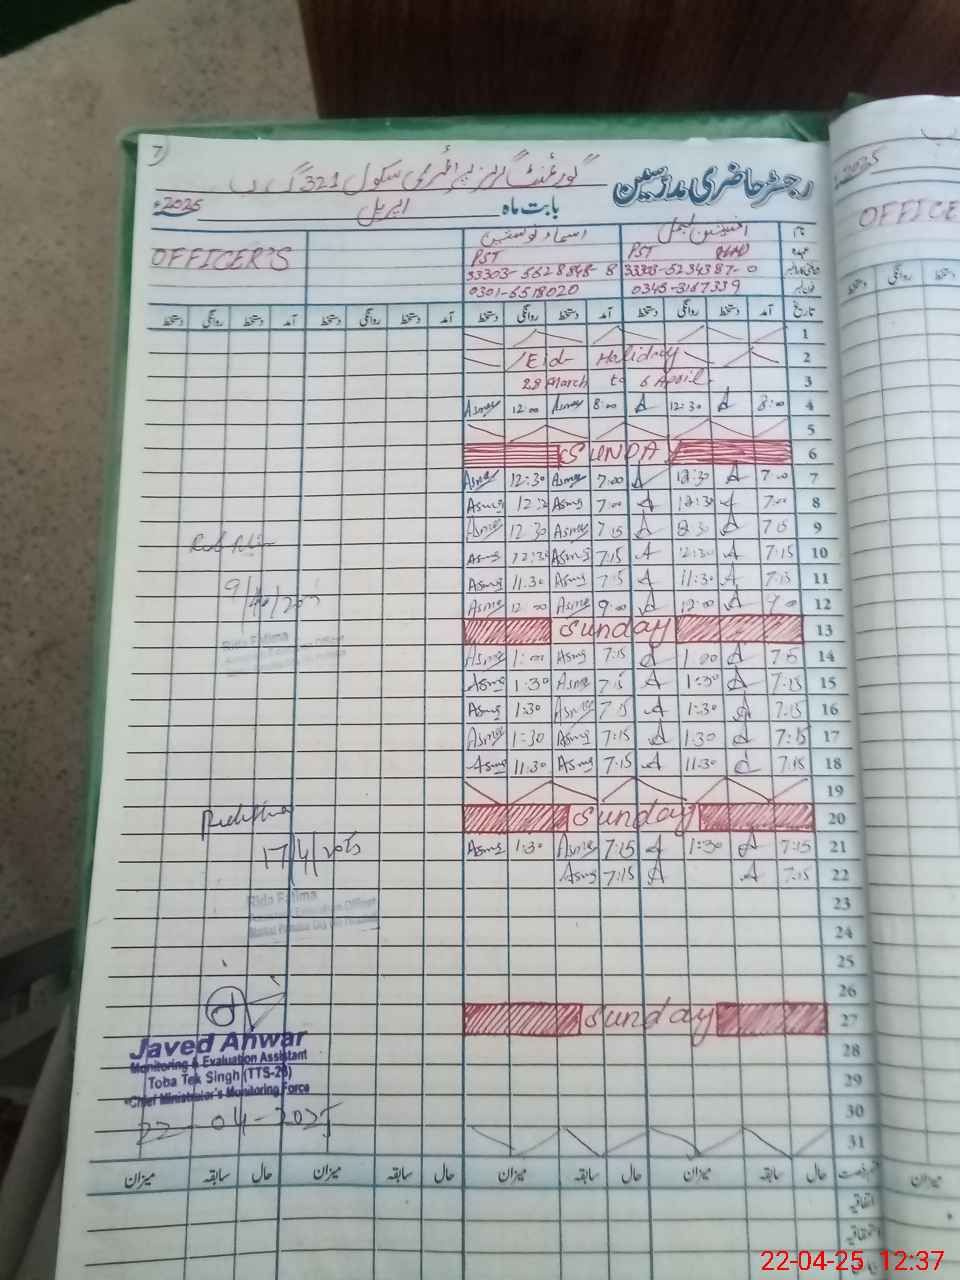 7
رجسٹر حاضری مدرسین گورئمنٹ گرلز پرائمری سکول 321 گ ب
بابت ماہ اپریل 2025ء
نام
اسماء نوشین
OFFICER'S PST PST HEAD
33303-5628848-8 33303-5234387-0
0301-6518020 0345-3167339
تاریخ آمد دستخط روانگی دستخط آمد دستخط روانگی دستخط آمد دستخط روانگی دستخط آمد دستخط روانگی دستخط
1
Eid Holiday 2
28 March to 6 April 3
Asma 12:00 Asma 8:00 A 12:30 A 8:00 4
5
SUNDAY 6
Asma 12:30 Asma 7:00 A 12:30 A 7:00 7
Asma 12:30 Asma 7:00 A 12:30 A 7:00 8
Asma 12:30 Asma 7:15 A 12:30 A 7:15 9
Asma 12:30 Asma 7:15 A 12:30 A 7:15 10
Asma 11:30 Asma 7:15 A 11:30 A 7:15 11
Asma 12:00 Asma 9:00 A 12:00 A 9:00 12
Sunday 13
Asma 1:00 Asma 7:15 A 1:00 A 7:15 14
Asma 1:30 Asma 7:15 A 1:30 A 7:15 15
Asma 1:30 Asma 7:15 A 1:30 A 7:15 16
Asma 1:30 Asma 7:15 A 1:30 A 7:15 17
Asma 11:30 Asma 7:15 A 11:30 A 7:15 18
19
Sunday 20
Asma 1:30 Asma 7:15 A 1:30 A 7:15 21
Asma 7:15 A A 7:15 22
23
24
25
26
Sunday 27
28
29
30
31
حال سابقہ میزان حال سابقہ میزان حال سابقہ میزان حال سابقہ میزان
اتفاقیہ
9/4/2025
Rida Fatima
17/4/2025
Rida Fatima
Assistant Education Officer
Javed Anwar
Monitoring & Evaluation Assistant
Toba Tek Singh (TTS-28)
Chief Minister's Monitoring Force
22-04-2025
2025
OFFICE
22-04-25 12:37